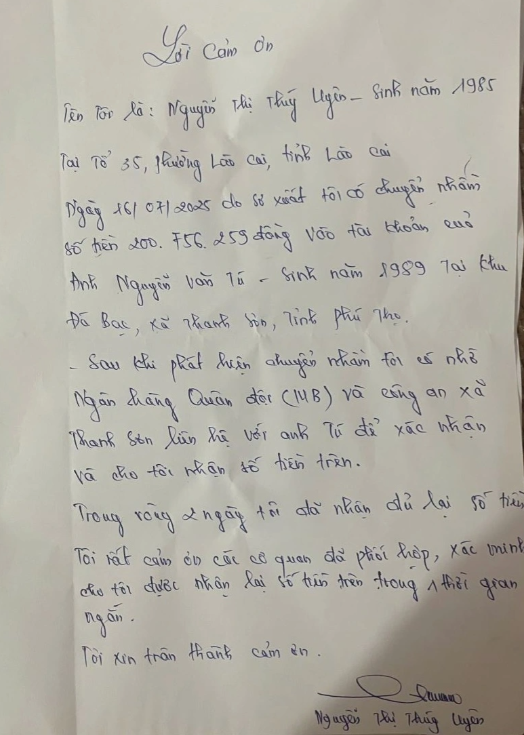 Lời cảm ơn
Tên Tôi là: Nguyễn Thị Thúy Uyên - Sinh năm 1985
Tại Tổ 35, phường Lào Cai, tỉnh Lào Cai
Ngày 16/07/2025 do sơ xuất tôi có chuyển nhầm
số tiền 200.756.259 đồng vào tài khoản của
Anh Nguyễn Văn Tú - Sinh năm 1989 Tại Khu
Đá Bạc, xã Thanh Sơn, Tỉnh Phú Thọ.
- Sau khi phát hiện chuyển nhầm tôi có nhờ
Ngân hàng Quân đội (MB) và công an xã
Thanh Sơn liên hệ với anh Tú để xác nhận
và cho tôi nhận số tiền trên.
Trong vòng 2 ngày tôi đã nhận đủ lại số tiền
Tôi rất cảm ơn các cơ quan đã phối hợp, xác minh
cho tôi được nhận lại số tiền trên trong 1 thời gian
ngắn.
Tôi xin trân thành cảm ơn.
Nguyễn Thị Thúy Uyên